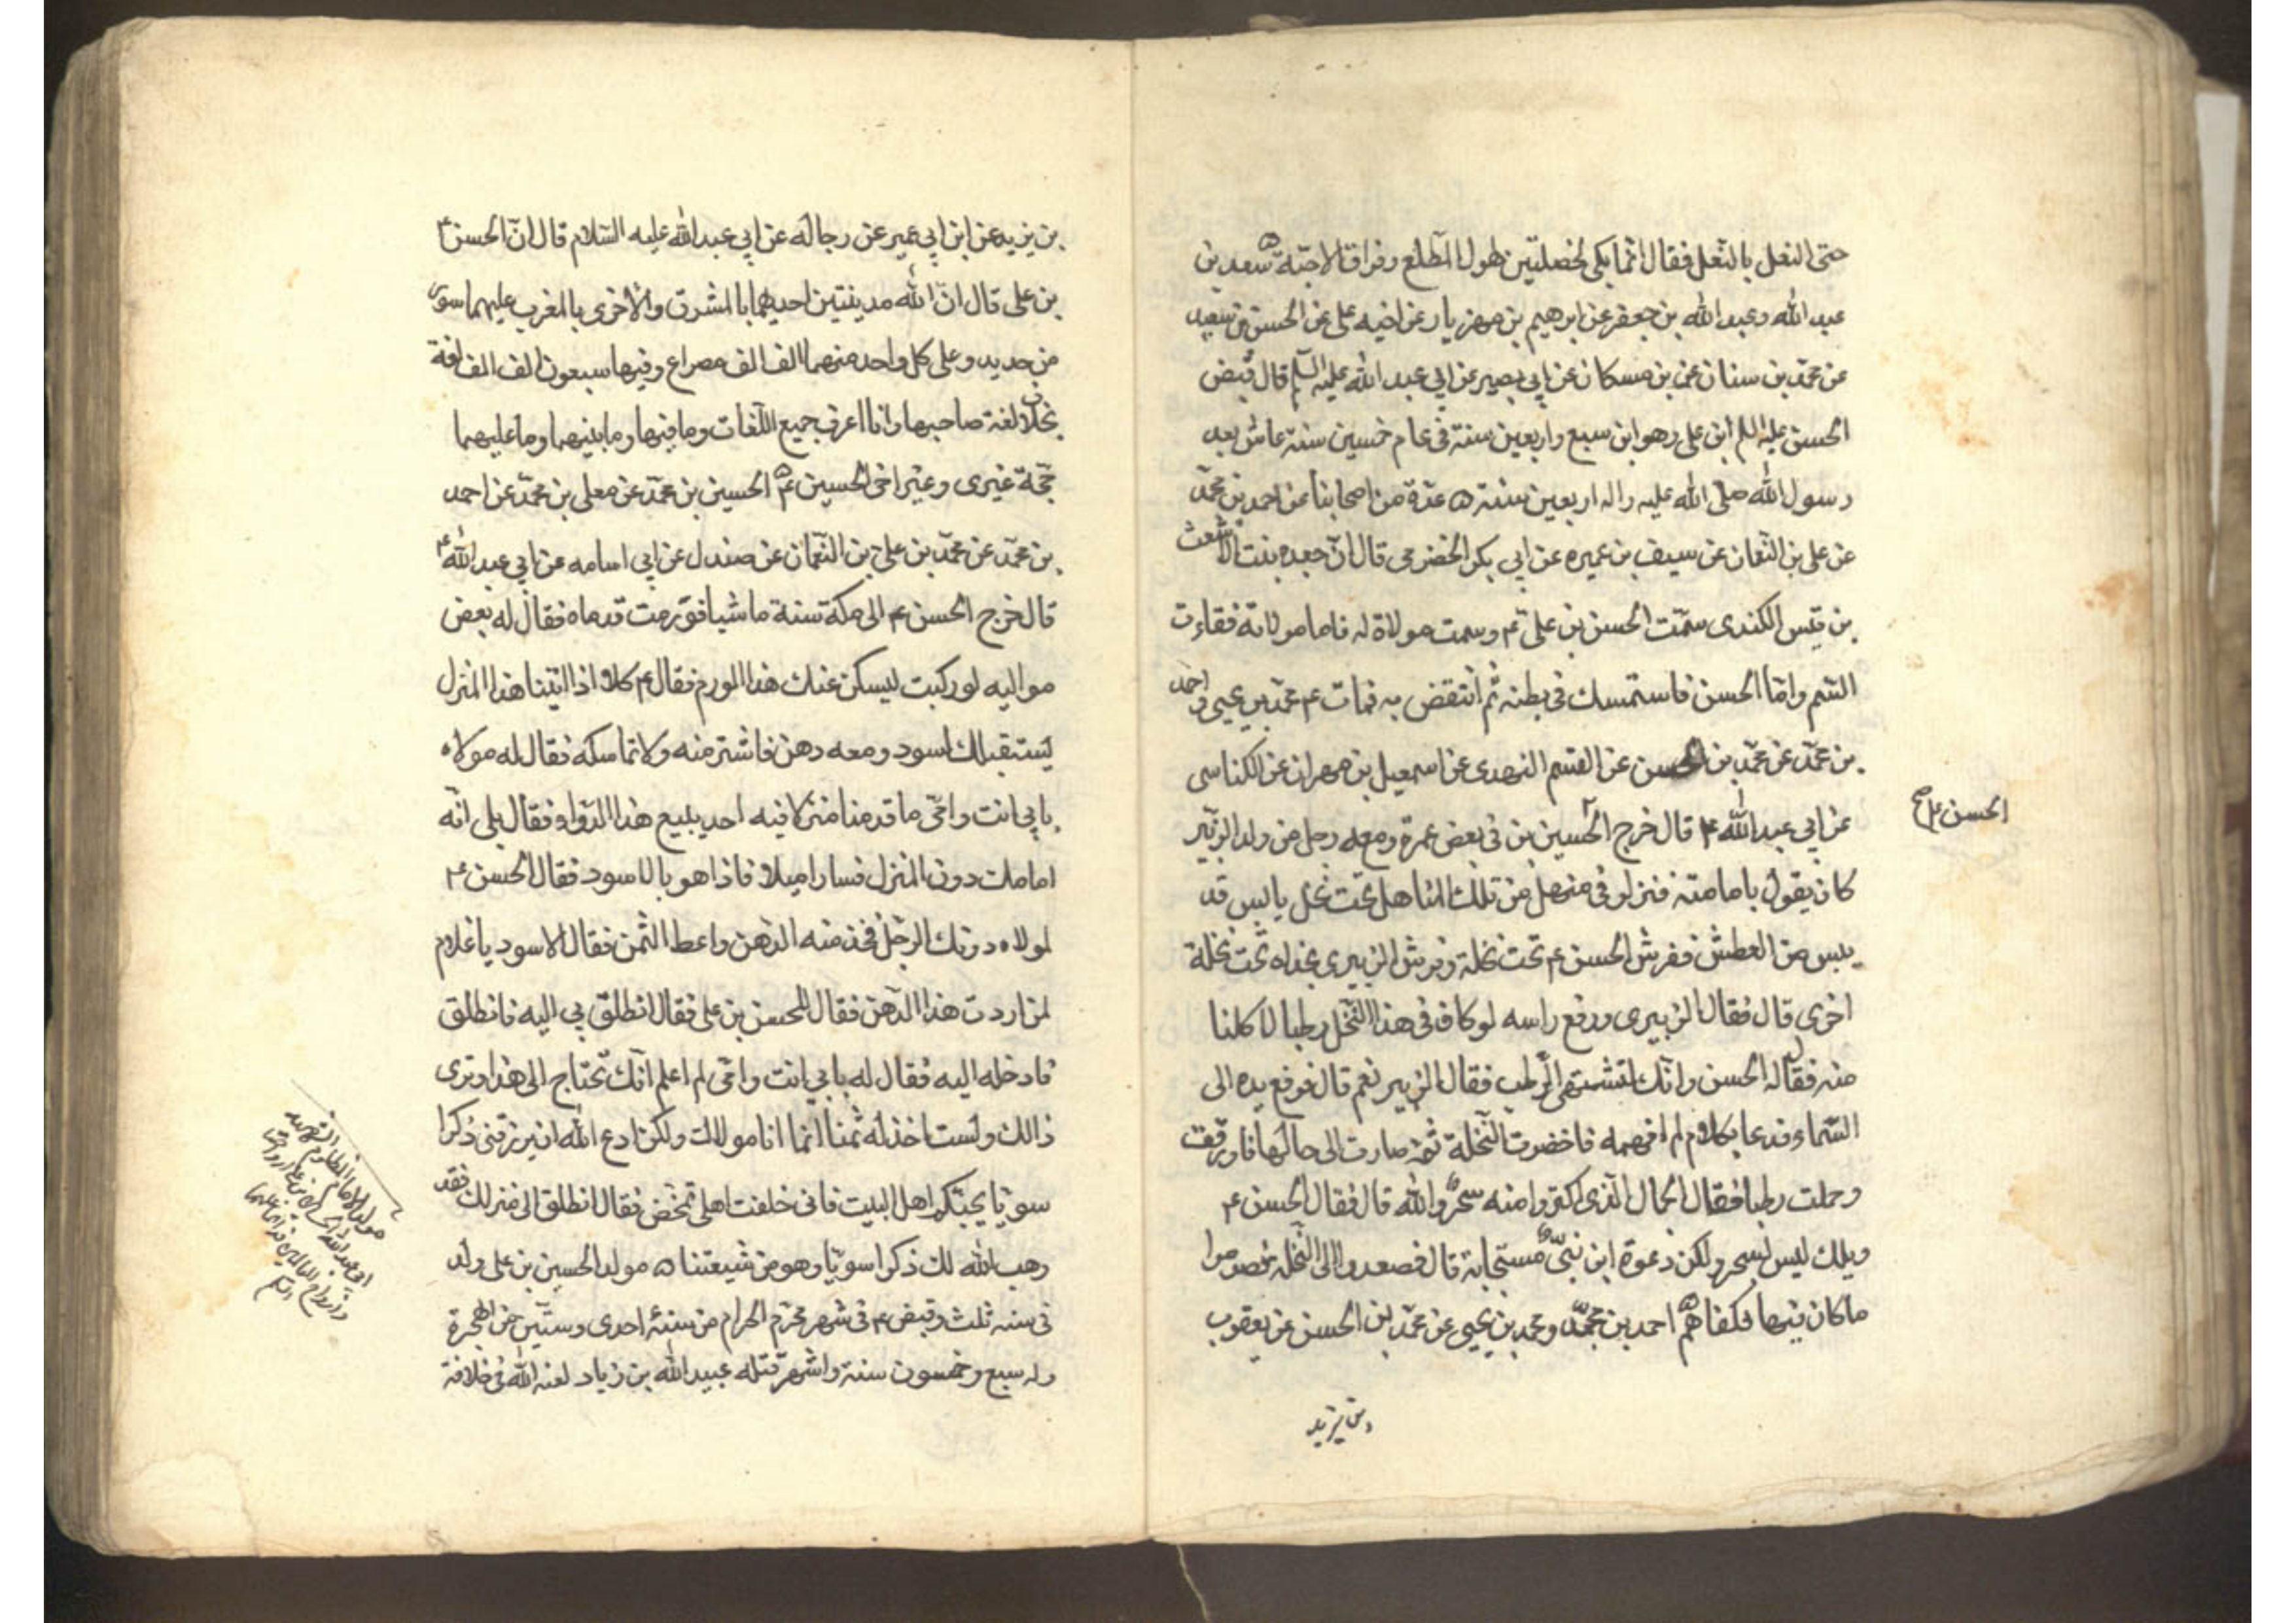 حتى النعل بالنعل فقال انما بكى لخصلتين لهول المطلع وفراق الاحبة ه سعد بن
عبد الله وعبد الله بن جعفر عن ابرهيم بن مهزيار عن اخيه على عن الحسن بن سعيد
عن محمد بن سنان عن بن مسكان عن ابي بصير عن ابي عبد الله عليه السلم قال قبض
الحسن عليه السلم ابن على وهو ابن سبع واربعين سنة في عام خمسين سنة عاش بعد
رسول الله صلى الله عليه واله اربعين سنة ه عدة من اصحابنا عن احمد بن محمد
عن على بن النعمان عن سيف بن عميره عن ابي بكر الحضرمى قال ان جعده بنت الاشعث
بن قيس الكندى سمت الحسن بن على ع وسمت مولاة له فاما مولاته فقاءت
السم واما الحسن فاستمسك في بطنه ثم انتقض به فمات ع محمد بن يحيى واحمد
بن محمد عن محمد بن الحسن عن القسم النهدى عن اسمعيل بن مهران عن الكناسى
عن ابي عبد الله ع قال خرج الحسين بن في بعض عمرة ومعه رجل من ولد الزبير
الحسن بن على ع
كان يقول باما مته فنزلو في منهل من تلك المناهل تحت نخل يابس قد
يبس من العطش ففرش الحسن ع تحت نخلة وفرش الزبيرى بحذاه تحت نخلة
اخرى قال فقال الزبيرى ورفع راسه لو كان في هذا النخل رطبا لاكلنا
منه فقال له الحسن وانك لتشتهى الرطب فقال الزبير نعم قال فرفع يده الى
السماء فدعا بكلام لم افهمه فاخضرت النخلة ثم صارت الى حالها فاورقت
وحملت رطبا فقال الجمال الذى اكتروا منه سحر والله قال فقال الحسن ع
ويلك ليس لسحر ولكن دعوة ابن نبى مستجابة قال فصعدوا الى النخلة فصرموا
ما كان فيها فكفاهم ه احمد بن محمد ومحمد بن يحيى عن محمد بن الحسن عن يعقوب
بن يزيد
بن يزيد عن ابن ابي عمير عن رجاله عن ابي عبد الله عليه السلام قال ان الحسن ع
بن على قال ان لله مدينتين احديهما بالمشرق والاخرى بالمغرب عليهما سور
من حديد وعلى كل واحد منهما الف الف مصراع وفيها سبعون الف الف لغة
بخلاف لغة صاحبها وانا اعرف جميع اللغات وما فيها وما بينهما وما عليهما
حجة غيرى وغير اخى الحسين ع ه الحسين بن محمد عن معلى بن محمد عن احمد
بن محمد عن محمد بن على بن النعمان عن صندل عن ابي اسامه عن ابي عبد الله ع
قال خرج الحسن ع الى مكة سنة ماشيا فورمت قدماه فقال له بعض
مواليه لو ركبت ليسكن عنك هذا الورم فقال ع كلا اذا اتينا هذا المنزل
يستقبلك اسود ومعه دهن فاشتر منه ولا تماسكه فقال له مولاه
بابي انت وامى ما قدمنا منزلا فيه احد يبيع هذا الدواء فقال بلى انه
امامك دون المنزل فسارا ميلا فاذا هو بالاسود فقال الحسن ع
لمولاه دونك الرجل فخذ منه الدهن واعط الثمن فقال الاسود يا غلام
لمن اردت هذا الدهن فقال للحسن بن على فقال انطلق بي اليه فانطلق
فادخله اليه فقال له بابي انت وامى لم اعلم انك تحتاج الى هذا وترى
ذالك ولست اخذ له ثمنا انما انا مولاك ولكن ادع الله ان يرزقنى ذكرا
سويا يحبكم اهل البيت فانى خلفت اهلى تمخض فقال انطلق الى منزلك فقد
وهب الله لك ذكرا سويا وهو من شيعتنا ه مولد الحسين بن على ولد
في سنه ثلث وقبض ع في شهر محرم الحرام من سنة احدى وستين من الهجرة
وله سبع وخمسون سنة واشهر قتله عبيد الله بن زياد لعنه الله في خلافة
مولد الامام المظلوم الشهيد
ابي عبد الله